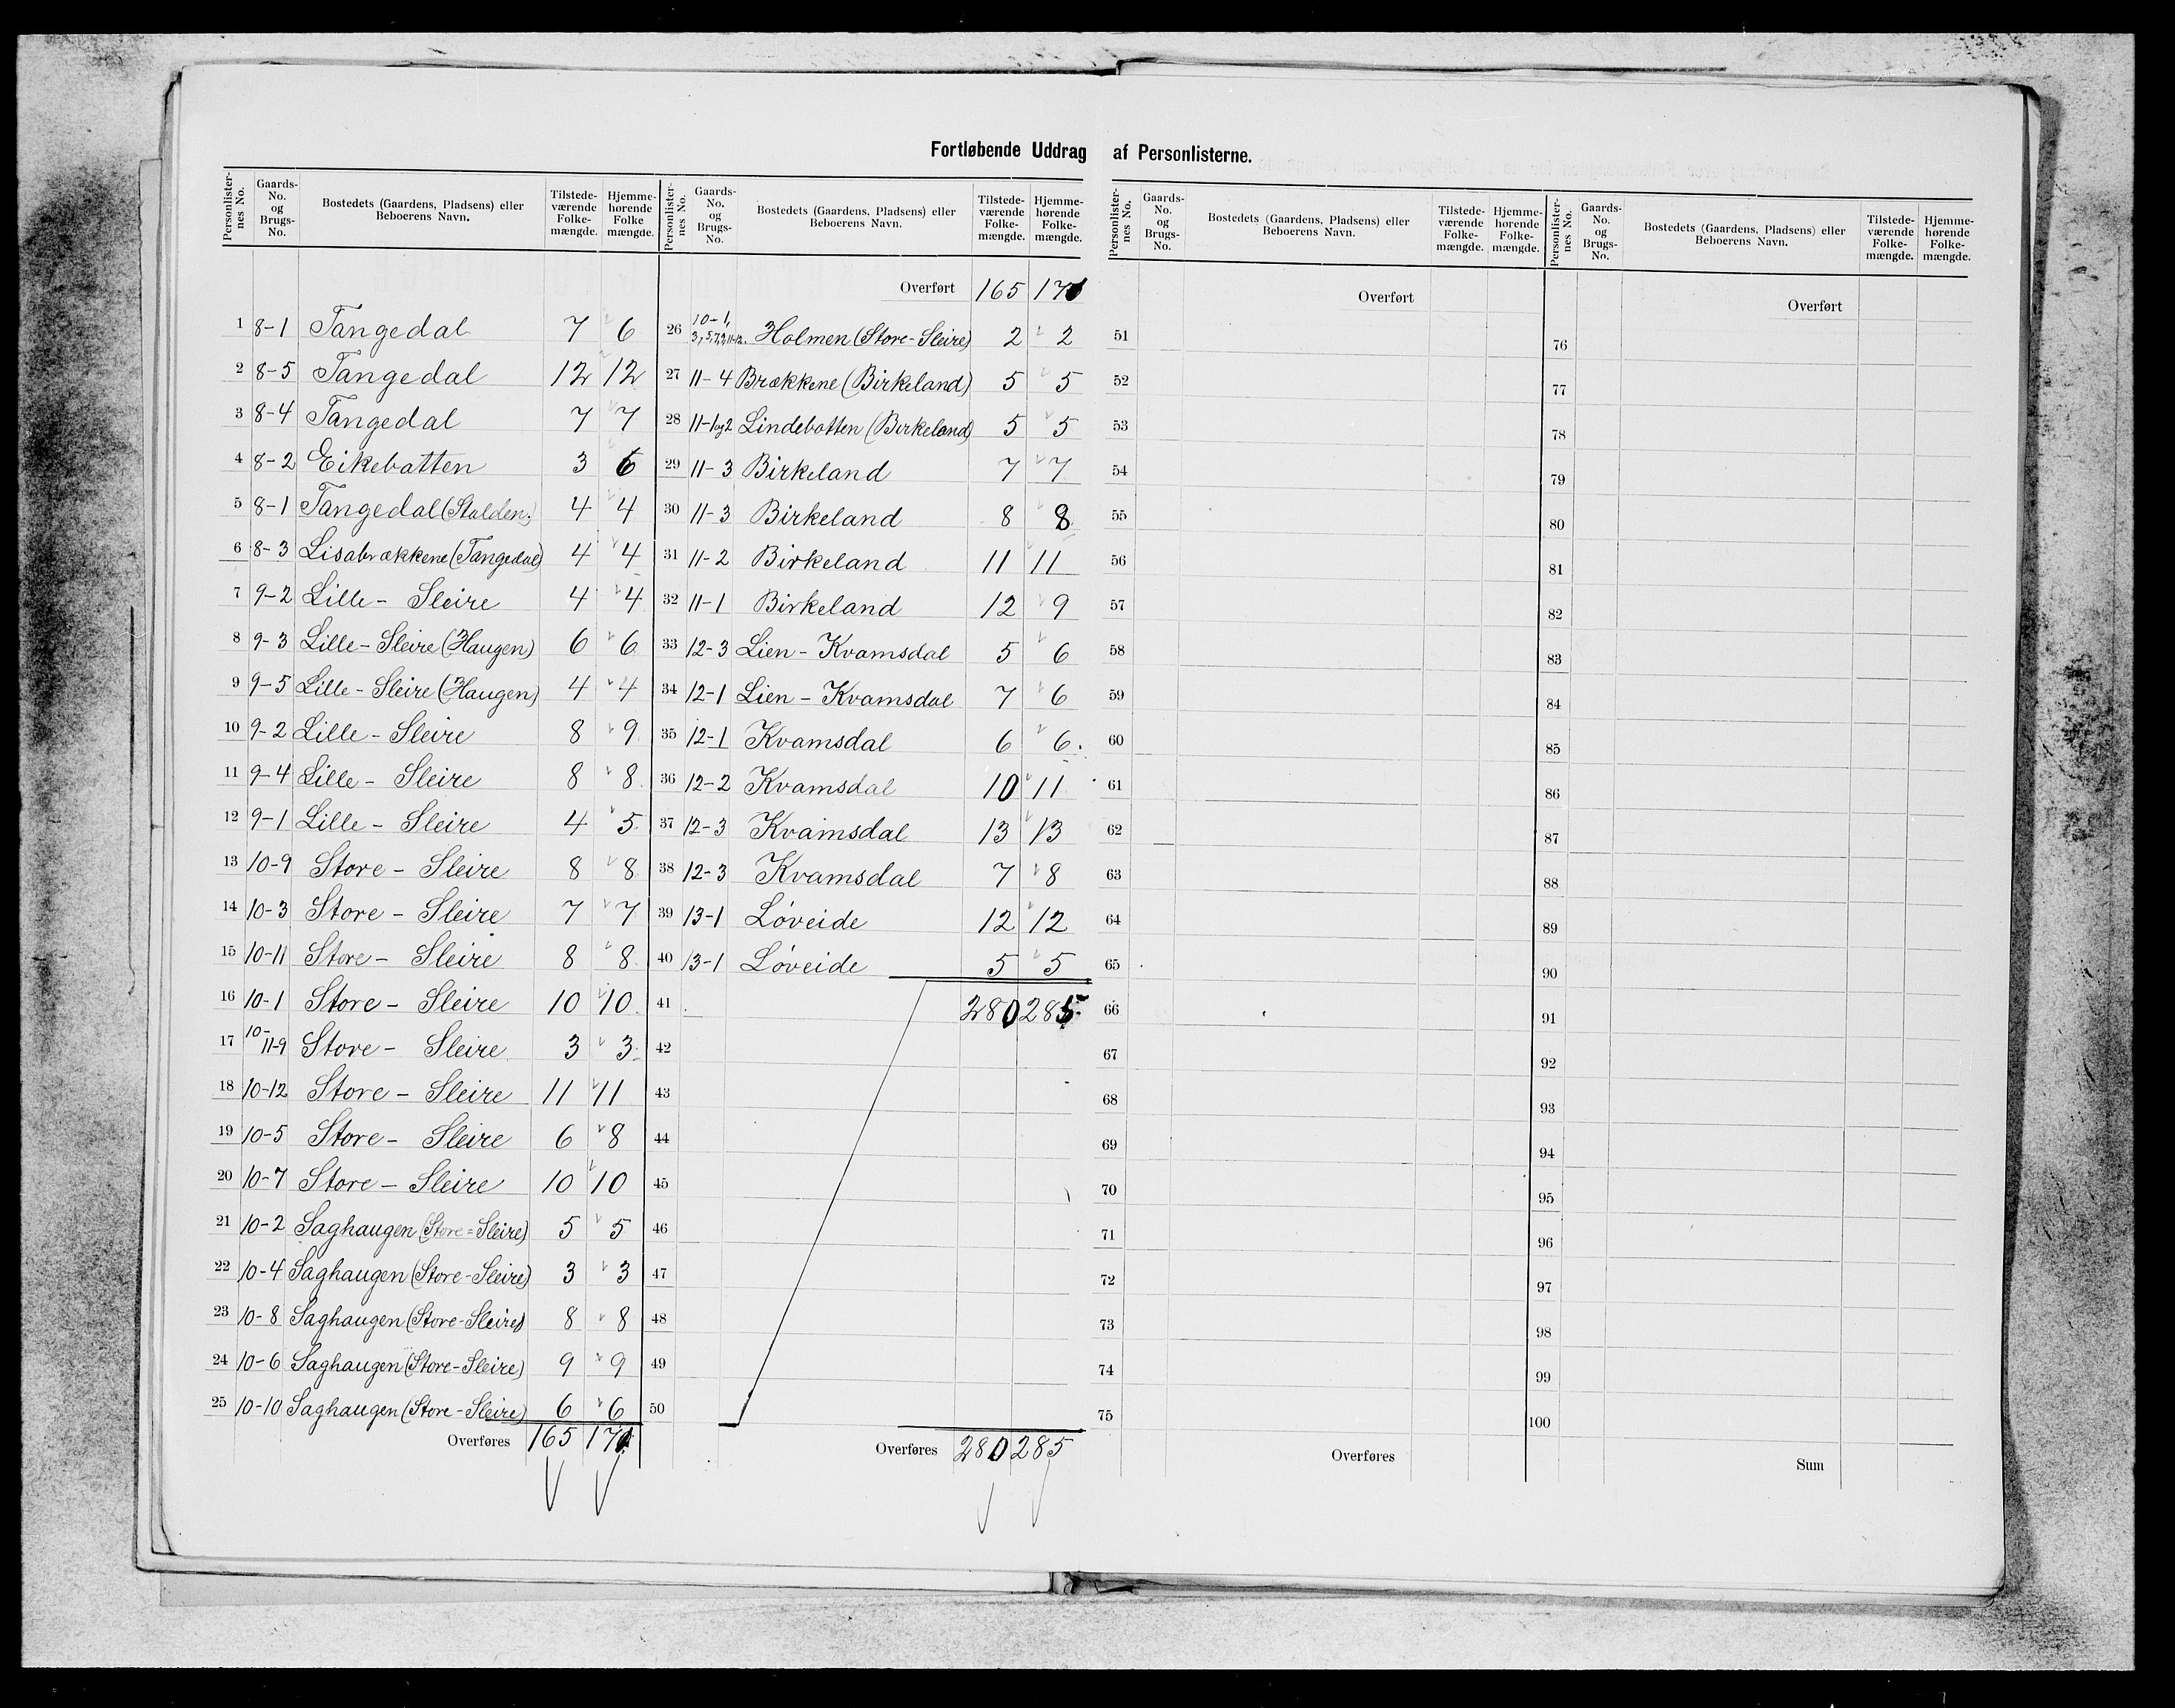 Fortløbende Uddrag af Personlisterne.
Personlister-nes No. | Gaards-No. og Brugs-No. | Bostedets (Gaardens, Pladsens) eller Beboerens Navn. | Tilstede-værende Folke-mængde. | Hjemme-hørende Folke mængde.
1 8-1 Tangedal 7 6
2 8-5 Tangedal 12 12
3 8-4 Tangedal 7 7
4 8-2 Eikebotten 3 6
5 8-1 Tangedal (Stolden) 4 4
6 8-3 Lisabrækkene (Tangedal) 4 4
7 9-2 Lille-Sleire 4 4
8 9-3 Lille-Sleire (Haugen) 6 6
9 9-5 Lille-Sleire (Haugen) 4 4
10 9-2 Lille-Sleire 8 9
11 9-4 Lille-Sleire 8 8
12 9-1 Lille-Sleire 4 5
13 10-9 Store-Sleire 8 8
14 10-3 Store-Sleire 7 7
15 10-11 Store-Sleire 8 8
16 10-1 Store-Sleire 10 10
17 10-11-9 Store-Sleire 3 3
18 10-12 Store-Sleire 11 11
19 10-5 Store-Sleire 6 8
20 10-7 Store-Sleire 10 10
21 10-2 Saghaugen (Store-Sleire) 5 5
22 10-4 Saghaugen (Store-Sleire) 3 3
23 10-8 Saghaugen (Store-Sleire) 8 8
24 10-6 Saghaugen (Store-Sleire) 9 9
25 10-10 Saghaugen (Store-Sleire) 6 6
Overføres 165 171
Personlister-nes No. | Gaards-No. og Brugs-No. | Bostedets (Gaardens, Pladsens) eller Beboerens Navn. | Tilstede-værende Folke-mængde. | Hjemme-hørende Folke-mængde.
Overført 165 171
26 10-1, 3, 5, 7, 9, 11-12. Holmen (Store-Sleire) 2 2
27 11-4 Brækkene (Birkeland) 5 5
28 11-1 og 2 Lindebotten (Birkeland) 5 5
29 11-3 Birkeland 7 7
30 11-3 Birkeland 8 8
31 11-2 Birkeland 11 11
32 11-1 Birkeland 12 9
33 12-3 Lien-Kvamsdal 5 6
34 12-1 Lien-Kvamsdal 7 6
35 12-1 Kvamsdal 6 6.
36 12-2 Kvamsdal 10 11
37 12-3 Kvamsdal 13 13
38 12-3 Kvamsdal 7 8
39 13-1 Løveide 12 12
40 13-1 Løveide 5 5
41 280 285
42
43
44
45
46
47
48
49
50
Overføres 280 285
Personlister-nes No. | Gaards-No. og Brugs-No. | Bostedets (Gaardens, Pladsens) eller Beboerens Navn. | Tilstede-værende Folke-mængde. | Hjemme-hørende Folke-mængde.
Overført
51
52
53
54
55
56
57
58
59
60
61
62
63
64
65
66
67
68
69
70
71
72
73
74
75
Overføres
Personlister-nes No. | Gaards-No. og Brugs-No. | Bostedets (Gaardens, Pladsens) eller Beboerens Navn. | Tilstede-værende Folke-mængde. | Hjemme-hørende Folke-mængde.
Overført
76
77
78
79
80
81
82
83
84
85
86
87
88
89
90
91
92
93
94
95
96
97
98
99
100
Sum